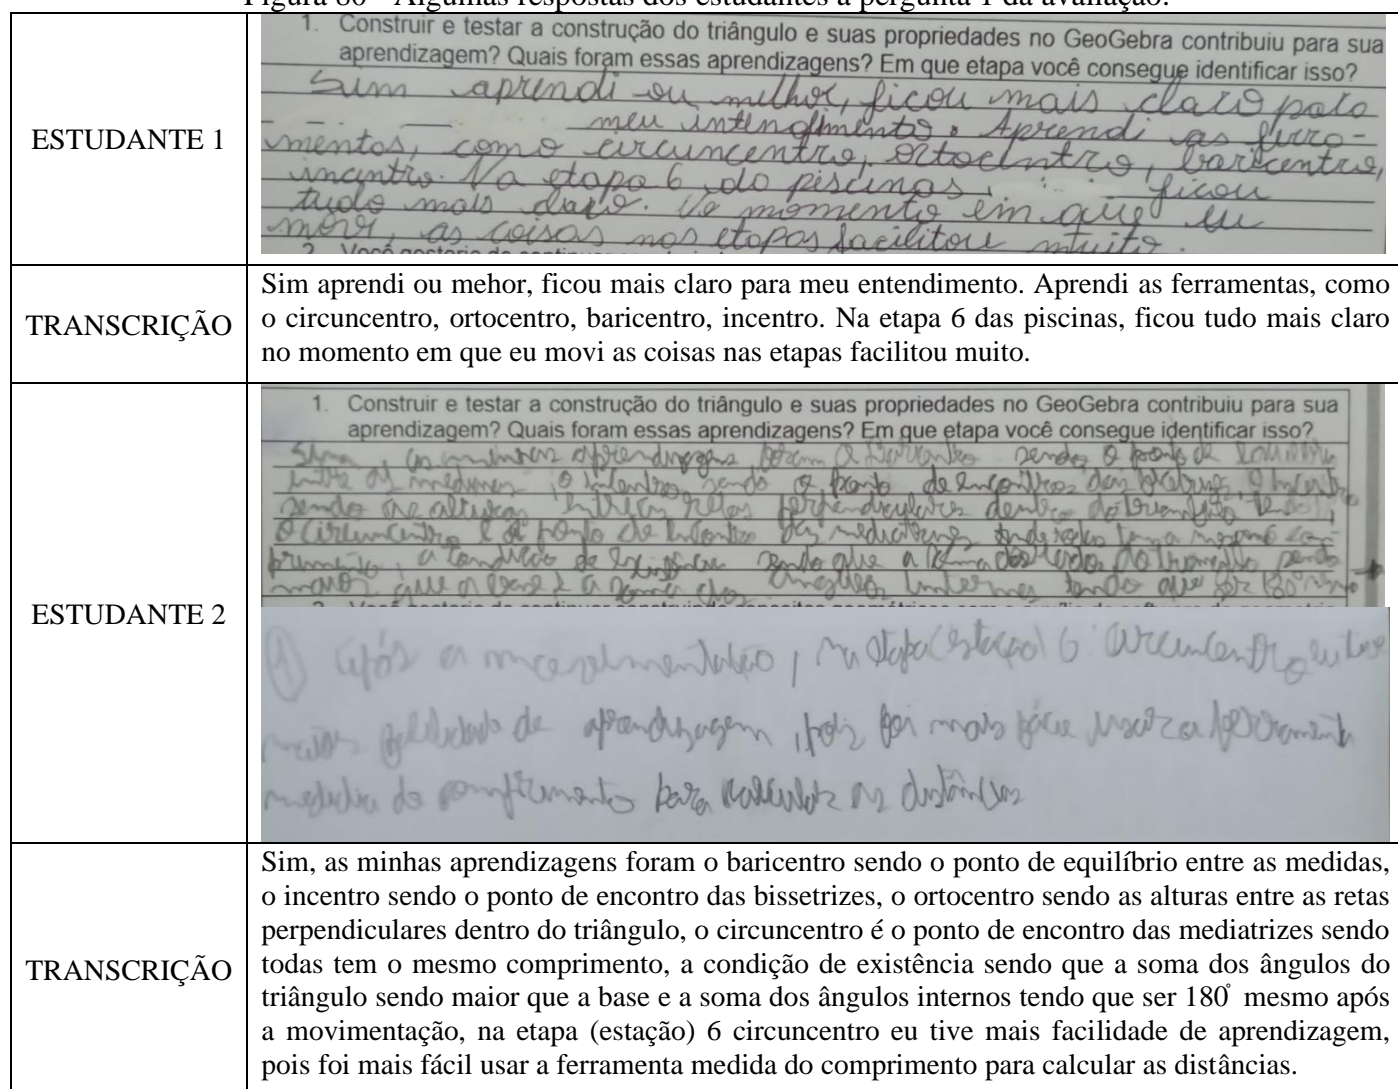 Figura 80 - Algumas respostas dos estudantes à pergunta 1 da avaliação.
ESTUDANTE 1
1. Construir e testar a construção do triângulo e suas propriedades no GeoGebra contribuiu para sua
aprendizagem? Quais foram essas aprendizagens? Em que etapa você consegue identificar isso?
Sim aprendi ou melhor, ficou mais claro para
meu intendimento. Aprendi as ferra-
mentas, como circuncentro, ortocentro, baricentro,
incentro. Na etapa 6 do piscinas ficou
tudo mais claro. No momento em que eu
movi, as coisas nas etapas facilitou muito.
TRANSCRIÇÃO
Sim aprendi ou mehor, ficou mais claro para meu entendimento. Aprendi as ferramentas, como
o circuncentro, ortocentro, baricentro, incentro. Na etapa 6 das piscinas, ficou tudo mais claro
no momento em que eu movi as coisas nas etapas facilitou muito.
ESTUDANTE 2
1. Construir e testar a construção do triângulo e suas propriedades no GeoGebra contribuiu para sua
aprendizagem? Quais foram essas aprendizagens? Em que etapa você consegue identificar isso?
Sim, as minhas aprendizagens foram o sendo o ponto de
entre as , o incentro sendo o ponto de encontros das , o
sendo as alturas retas perpendiculares dentro do
o circuncentro é o ponto de encontro das mediatrizes tem o mesmo com-
primento, a condição de existência sendo que a soma dos lados do triangulo sendo
maior que a base e a soma dos angulos internos tendo que ser
1 após a , na etapa (estação) 6 circuncentro eu tive
mais de aprendizagem, pois foi mais fácil usar a ferramenta
medida do comprimento para calcular as distâncias
TRANSCRIÇÃO
Sim, as minhas aprendizagens foram o baricentro sendo o ponto de equilíbrio entre as medidas,
o incentro sendo o ponto de encontro das bissetrizes, o ortocentro sendo as alturas entre as retas
perpendiculares dentro do triângulo, o circuncentro é o ponto de encontro das mediatrizes sendo
todas tem o mesmo comprimento, a condição de existência sendo que a soma dos ângulos do
triângulo sendo maior que a base e a soma dos ângulos internos tendo que ser 180° mesmo após
a movimentação, na etapa (estação) 6 circuncentro eu tive mais facilidade de aprendizagem,
pois foi mais fácil usar a ferramenta medida do comprimento para calcular as distâncias.